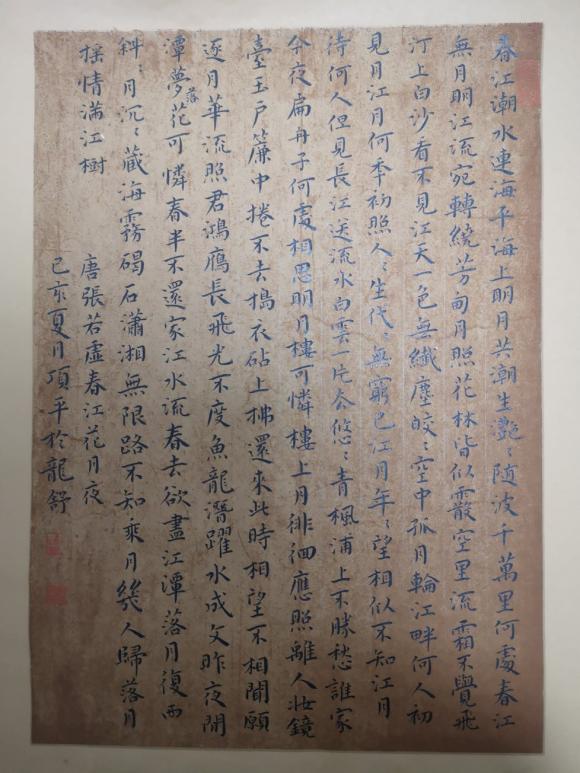 春江潮水連海平海上明月共潮生灔〻随波千萬里何處春江
無月明江流宛轉繞芳甸月照花林皆似霰空里流霜不覺飛
汀上白沙看不見江天一色無纖塵皎〻空中孤月輪江畔何人初
見月江月何年初照人〻生代〻無窮已江月年〻望相似不知江月
待何人但見長江送流水白雲一片去悠〻青楓浦上不勝愁誰家
今夜扁舟子何處相思明月樓可憐樓上月徘徊應照離人妝鏡
臺玉戶簾中捲不去搗衣砧上拂還來此時相望不相聞願
逐月華流照君鴻鴈長飛光不度魚龍潛躍水成文昨夜閒
潭夢落花可憐春半不還家江水流春去欲盡江潭落月復西
斜〻月沉〻藏海霧碣石瀟湘無限路不知乘月幾人歸落月
摇情满江樹
唐張若虛春江花月夜
己亥夏月項平於龍舒